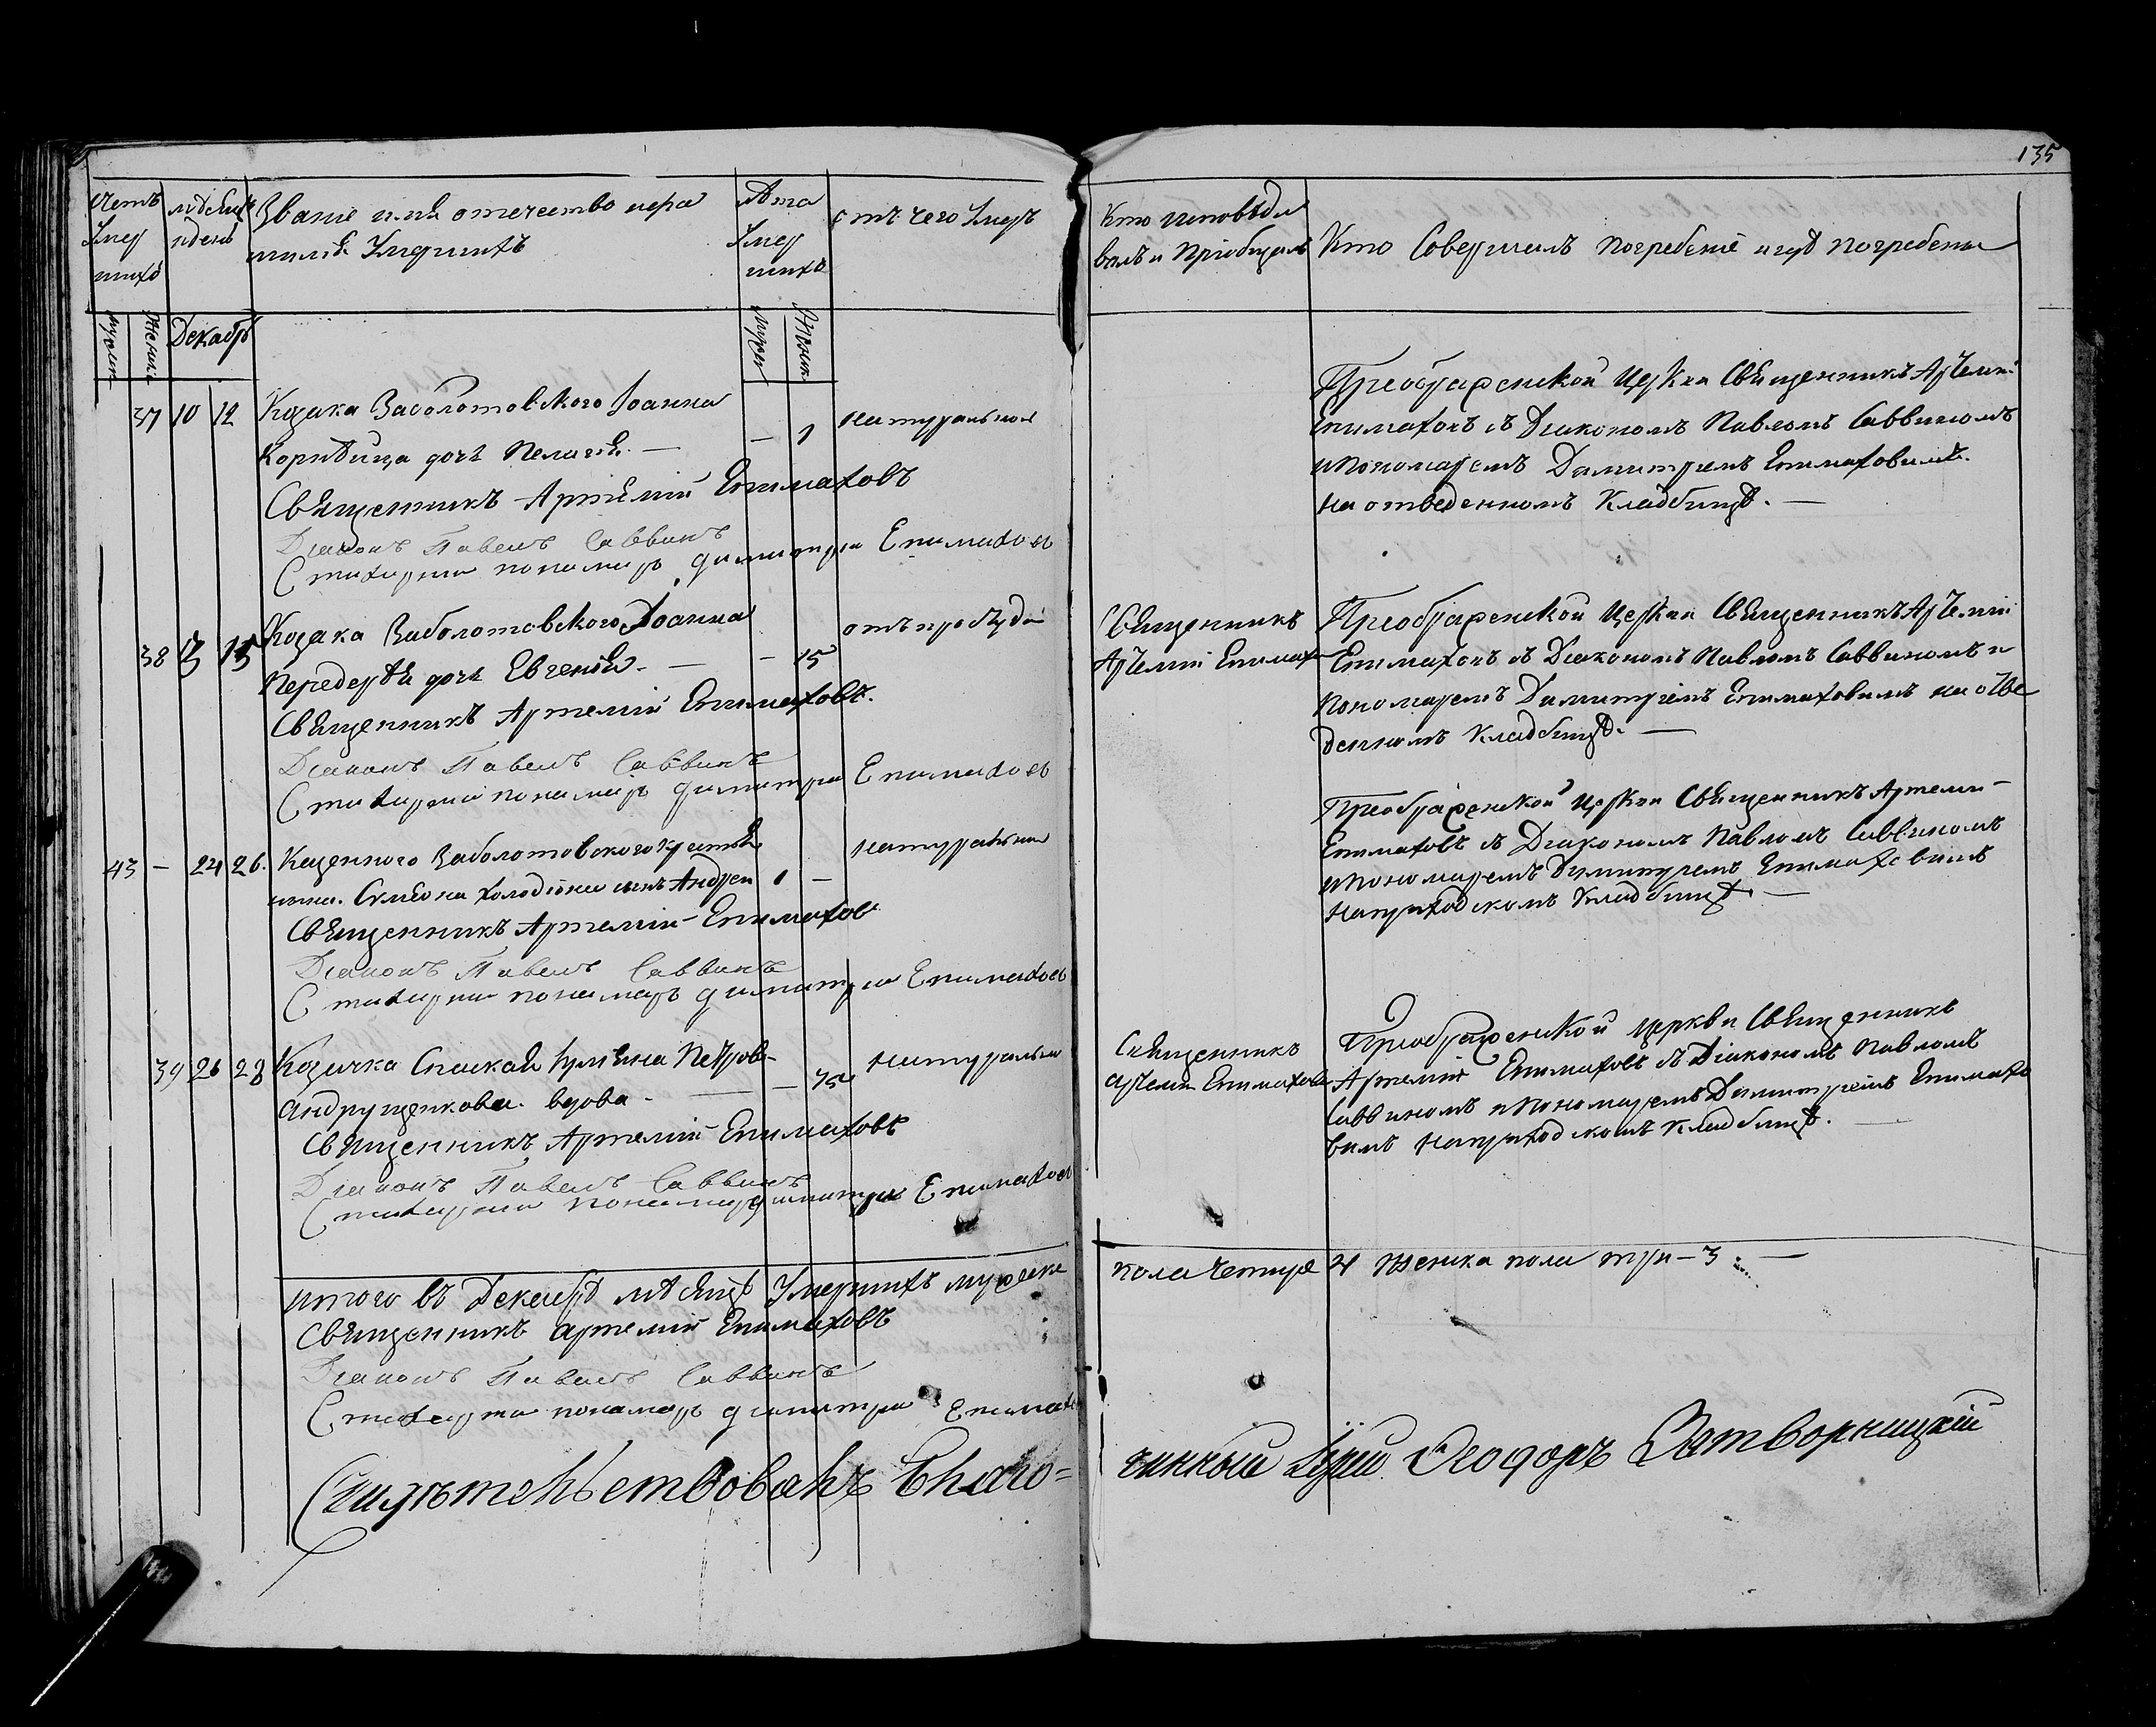 135
Счетъ Умер шихъ
мѣсяцъ и день
Званіе имя отечество и фа
милія Умершихъ
Лѣта Умер шихъ
отъ чего Умеръ
Кто исповѣды
валъ и Пріобщалъ
Кто Совершилъ погребеніе и гдѣ погребены
мужеск
женск
Декабрь
мужеск
женск
37 10 12
Козака Заболотовского Іоанна
Корнѣйца дочь Пелагія. —
— 1
натуральною
Священникъ Артемій Епимаховъ
Діаконъ Павелъ Саввинъ
Стихарный пономарь Димитрій Епимаховъ
Преображенской Церкви Священникъ Артемій
Епимаховъ съ Діакономъ Павломъ Саввиномъ
и Пономаремъ Димитріемъ Епимаховимъ.
на отведенномъ Кладбищѣ. —
38 13 15
Козака Заболотовского Іоанна
Передерѣя дочь Евгенія. —
— 15
отъ простуды
Священникъ Артемій Епимаховъ.
Діаконъ Павелъ Саввинъ
Стихарный пономарь Димитрій Епимаховъ
Священникъ
Артемій Епимахов
Преображенской Церкви Священникъ Артемій
Епимаховъ съ Діакономъ Павломъ Саввиномъ и
Пономаремъ Димитріемъ Епимаховимъ на отве
денномъ Кладбищѣ. —
43 — 24 26.
Казенного Заболотовского крестья
нина. Симеона Холодіона сынъ Андрей
1 —
натуральною
Священникъ Артемій Епимахов
Діаконъ Павелъ Саввинъ
Стихарный пономарь Димитрій Епимаховъ
Преображенской Церкви Священникъ Артемій
Епимаховъ съ Діакономъ Павломъ Саввиномъ
и Пономаремъ Димитріемъ Епимаховимъ
на приходскомъ Кладбищѣ —
39 26 28
Козачка Спаская Ульяна Петрова
Андрущенкова. вдова. —
— 75
натуральною
Священникъ Артемій Епимаховъ
Діаконъ Павелъ Саввинъ
Стихарный пономарь Димитрій Епимаховъ
Священникъ
Артемій Епимаховъ
Преображенской церкви Священникъ
Артемій Епимаховъ съ Діакономъ Павломъ
Саввиномъ и Пономаремъ Димитріемъ Епимахо
вимъ на приходскомъ кладбищѣ. —
итого въ Декабрѣ мѣсяцѣ Умершихъ мужеска
пола четыре 4 женска пола три — 3. —
Священникъ Артемій Епимаховъ
Діаконъ Павелъ Саввинъ
Стихарный пономарь Димитрій Епимахов
Свидѣтельствовалъ Благо=
чинный Іерей Ѳеодоръ Затворницкій